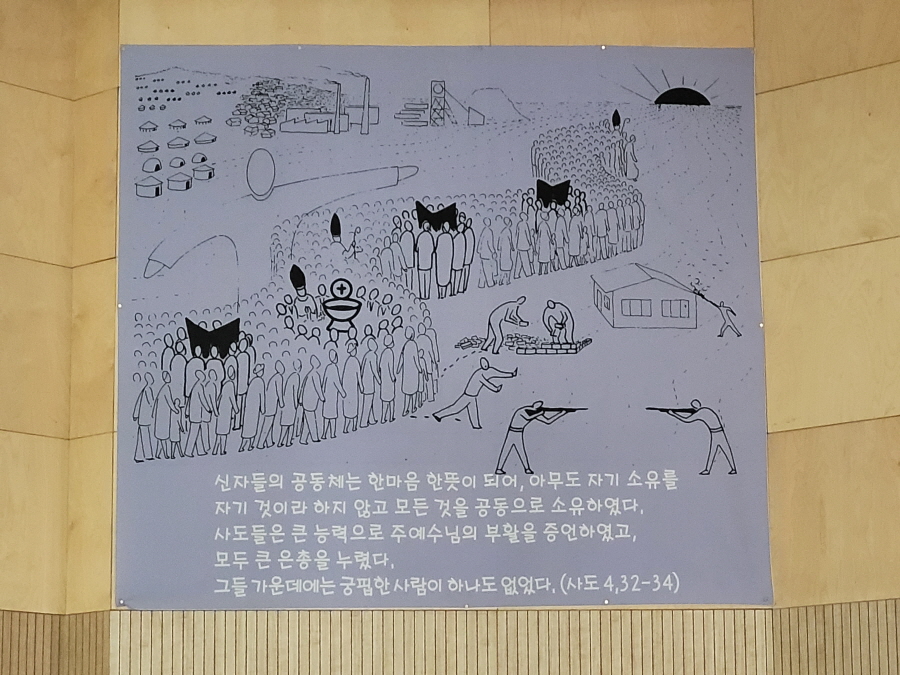 신자들의 공동체는 한마음 한뜻이 되어, 아무도 자기 소유를
자기 것이라 하지 않고 모든 것을 공동으로 소유하였다.
사도들은 큰 능력으로 주예수님의 부활을 증언하였고,
모두 큰 은총을 누렸다.
그들 가운데에는 궁핍한 사람이 하나도 없었다. (사도 4,32-34)